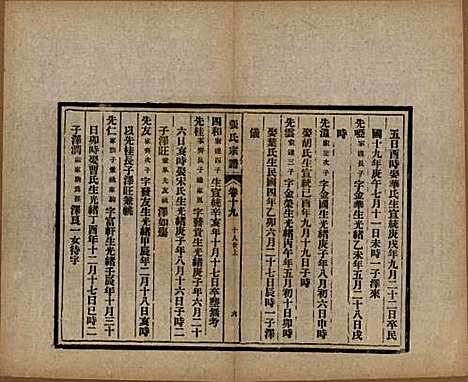 五日酉時娶華氏生宣統庚戌年九月二十二日卒民
國十九年庚午七月十一日未時一子澤來
先喨 字金華生光緒乙未年五月二十八日戌
時
先 字金國生光緒庚子年六月初六日申時
娶胡氏生宣統年九月十九日子時
先雲 字金榮生光緒丙午年五月初十日卯時
娶葉氏生民國四年乙卯六月二十七日辰時一子澤
儀
張氏宗譜
卷十九
十八世上
六
四和 生宣統辛亥年十月十七日卒塟無考
先桂 字齊賞生光緒庚子年六月二十
六日亥時娶宋氏生光緒庚子年八月十六日子時二
子澤旺 澤如
先友 字發友生光緒甲辰年二月十八日亥時
以先桂長子澤旺兼祧
先仁 字富軒生光緒壬辰年十月三十
日卯時娶曹氏生光緒丁酉年十二月十七日巳時二
子澤潤 澤良一女待字